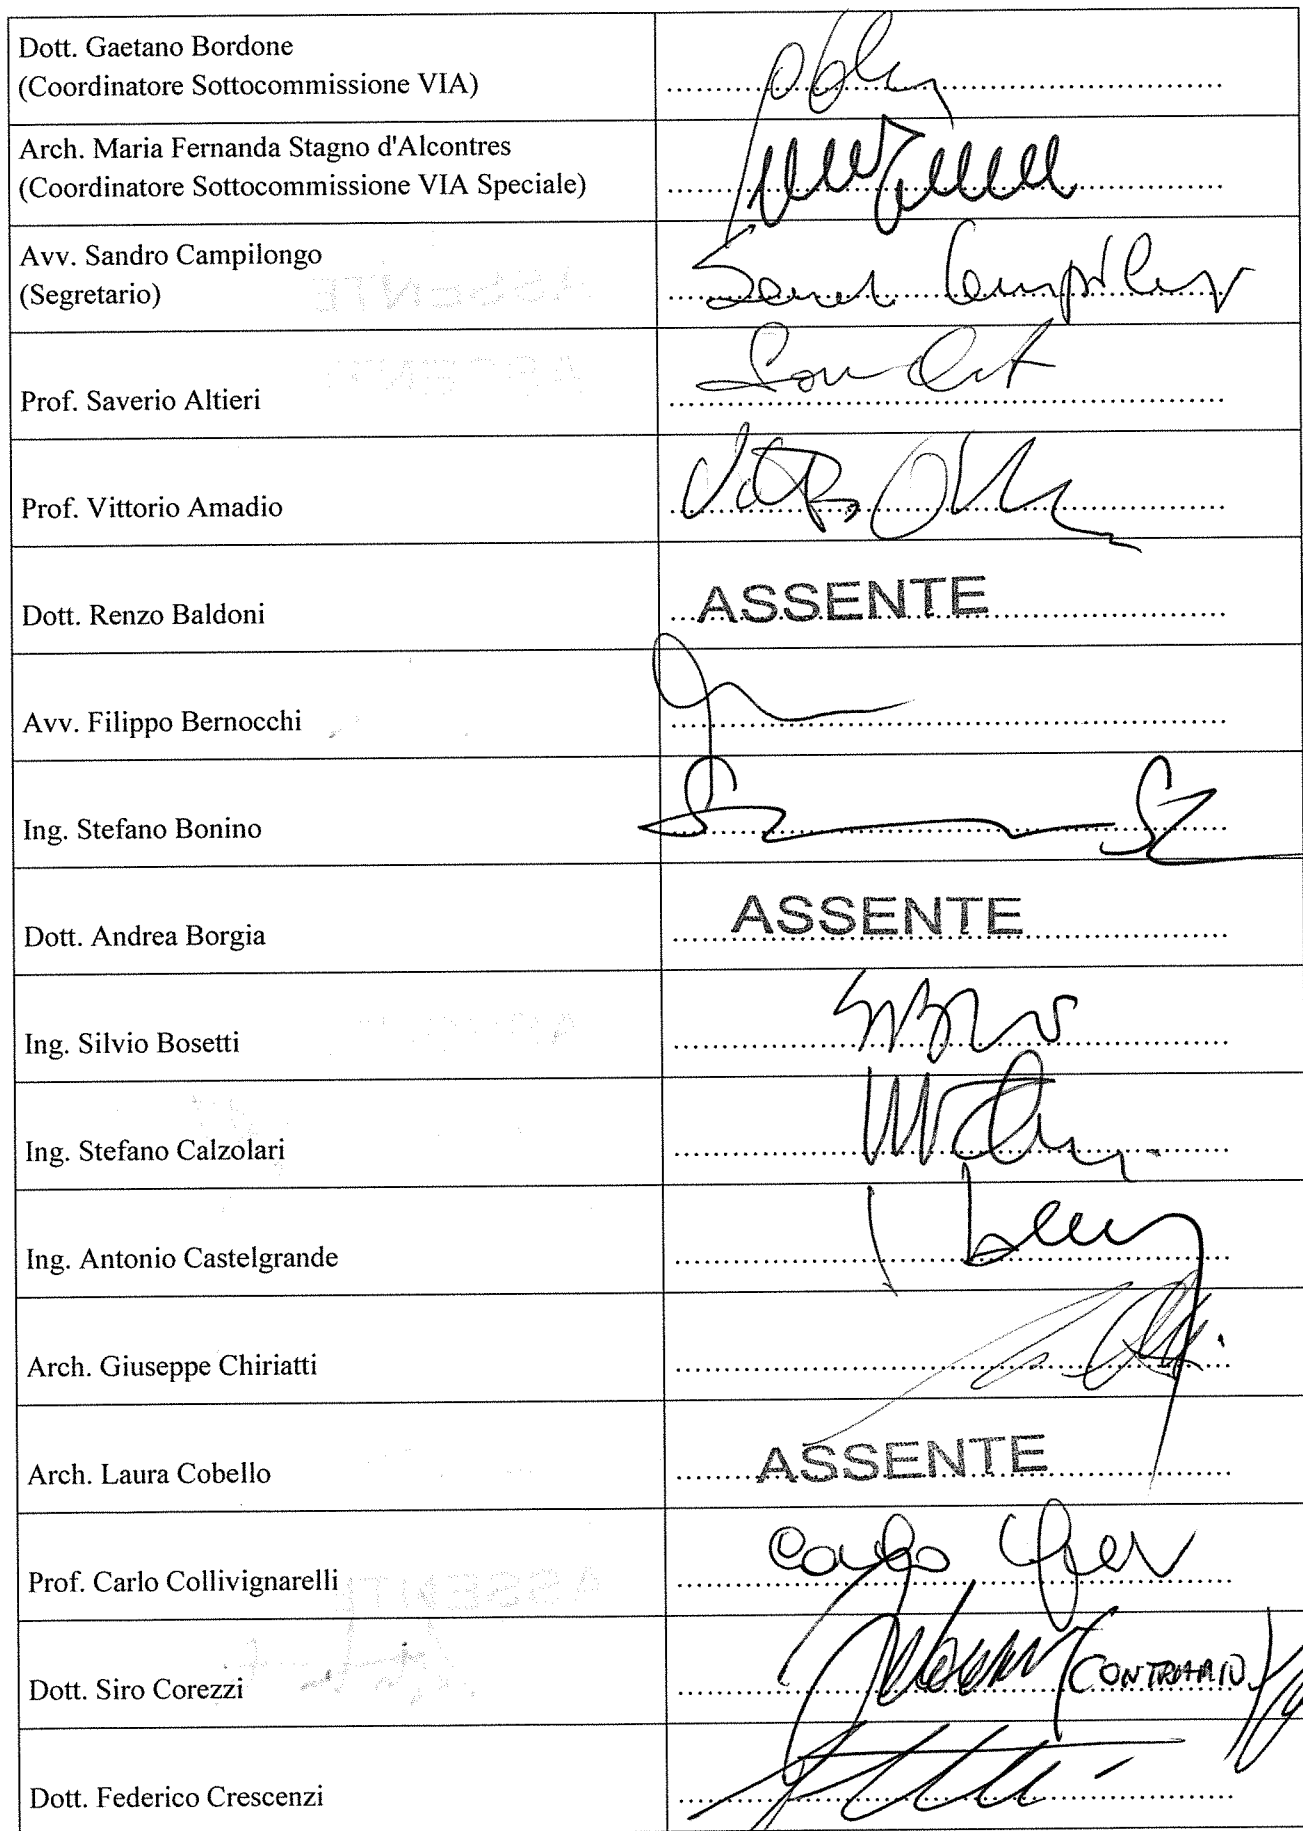 Dott. Gaetano Bordone
(Coordinatore Sottocommissione VIA)
Arch. Maria Fernanda Stagno d'Alcontres
(Coordinatore Sottocommissione VIA Speciale)
Avv. Sandro Campilongo
(Segretario)
Prof. Saverio Altieri
Prof. Vittorio Amadio
Dott. Renzo Baldoni
ASSENTE
Avv. Filippo Bernocchi
Ing. Stefano Bonino
Dott. Andrea Borgia
ASSENTE
Ing. Silvio Bosetti
Ing. Stefano Calzolari
Ing. Antonio Castelgrande
Arch. Giuseppe Chiriatti
Arch. Laura Cobello
ASSENTE
Prof. Carlo Collivignarelli
Dott. Siro Corezzi
(CONTRARIO)
Dott. Federico Crescenzi